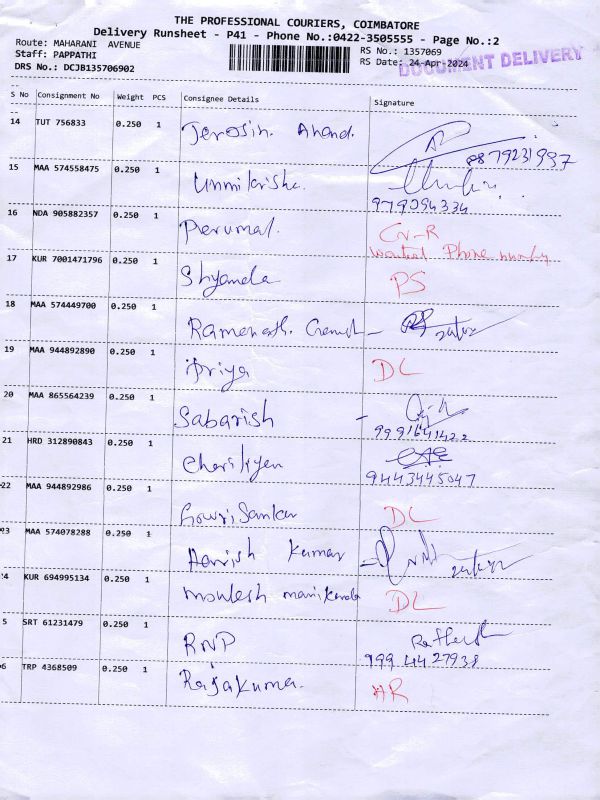 THE PROFESSIONAL COURIERS, COIMBATORE
Delivery Runsheet - P41 - Phone No.:0422-3505555 - Page No.:2
Route: MAHARANI AVENUE
Staff: PAPPATHI
DRS No.: DCJB135706902
RS No.: 1357069
RS Date: 24-Apr-2024
DOCUMENT DELIVERY
S No Consignment No Weight PCS Consignee Details Signature
14 TUT 756833 0.250 1 Jerosin. Anand.
8879231997
15 MAA 574558475 0.250 1 Unnikrisha.
979094334
16 NDA 905882357 0.250 1 Perumal. CN-R
Phone
17 KUR 7001471796 0.250 1 Shyamala PS
18 MAA 574449700 0.250 1 Ramanath.
19 MAA 944892890 0.250 1 Priya DL
20 MAA 865564239 0.250 1 Sabarish
21 HRD 312890843 0.250 1
9443445047
22 MAA 944892986 0.250 1 Gowri Sankar DL
23 MAA 574078288 0.250 1 Harrish Kumar
4 KUR 694995134 0.250 1 DL
5 SRT 61231479 0.250 1 RNP
9994427938
6 TRP 4368509 0.250 1 Rajakumar. AR